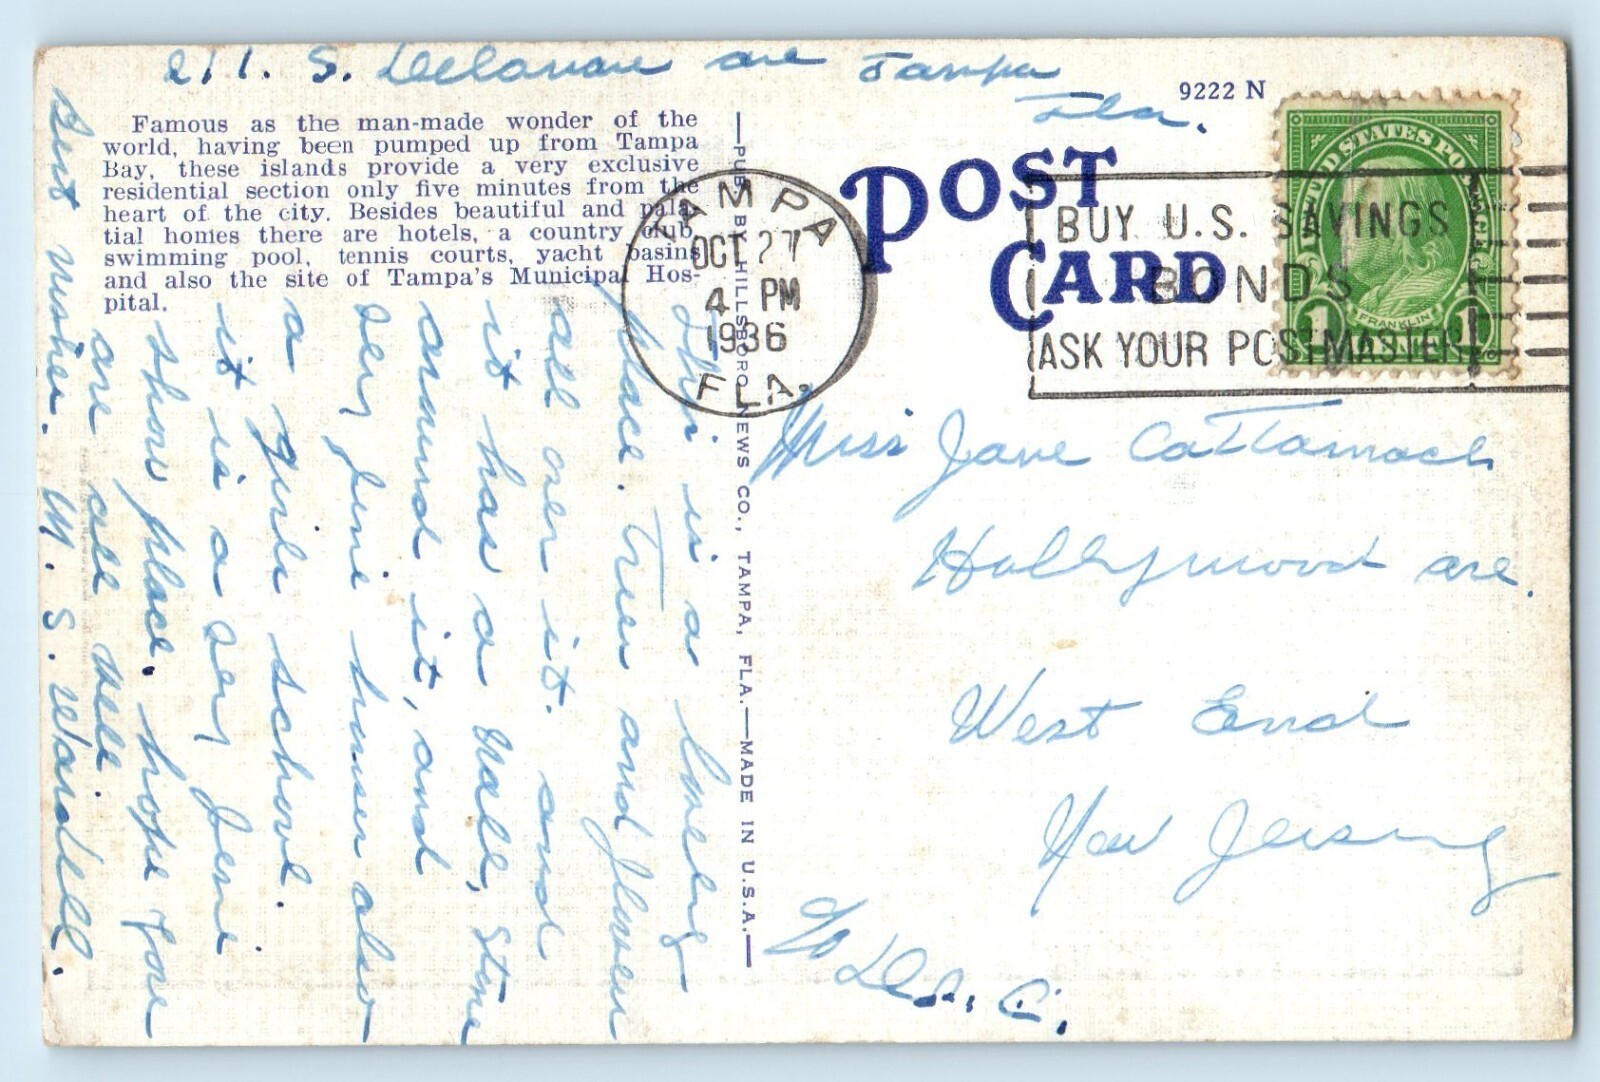 211. S. Delaware ave Tampa
Fla.
9222 N
Famous as the man-made wonder of the
world, having been pumped up from Tampa
Bay, these islands provide a very exclusive
residential section only five minutes from the
heart of the city. Besides beautiful and pala-
tial homes there are hotels, a country club,
swimming pool, tennis courts, yacht basins
and also the site of Tampa's Municipal Hos-
pital.
—PUB. BY HILLSBORO NEWS CO., TAMPA, FLA.—MADE IN U.S.A.—
POST
CARD
TAMPA
OCT 27
4 PM
1936
FLA.
BUY U.S. SAVINGS
BONDS
ASK YOUR POSTMASTER
UNITED STATES POSTAGE
FRANKLIN
1 CENT 1
This is a lovely
place. Trees and flowers
all over it. and
it has a wall, stone
around it, and
very fine homes also
a girls school.
it is a very fine
show place. hope you
are all well.
Best wishes. M. S. Wardell.
Miss Jane Cattanach
Hollywood ave.
West End
New Jersey